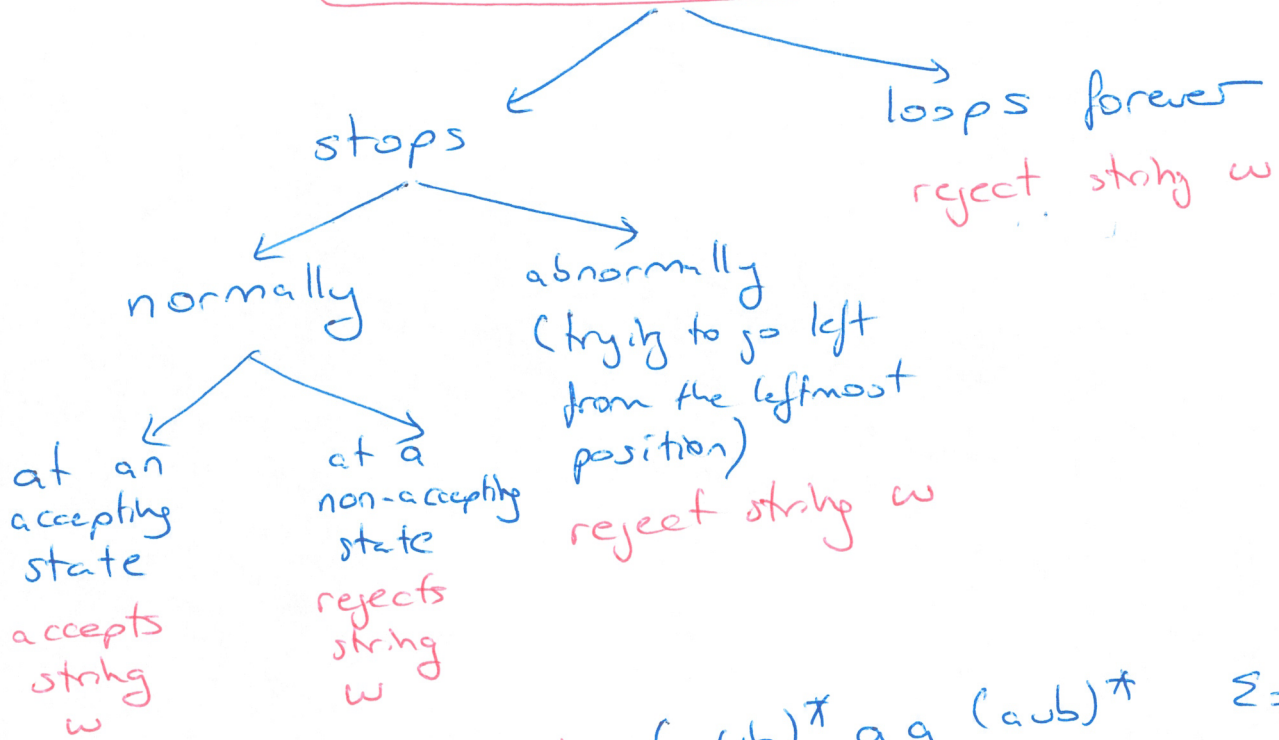 stops
loops forever
reject string w
normally
abnormally
(trying to go left
from the leftmost
position)
reject string w
at an
accepting
state
accepts
string
w
at a
non-accepting
state
rejects
string
w
(a∪b)* aa (a∪b)* Σ=